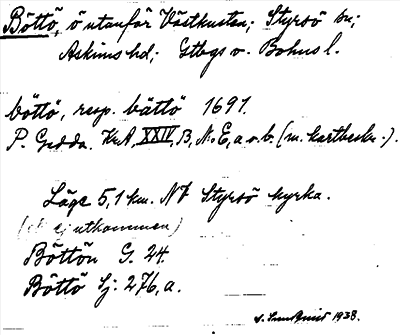 Böttö, ö utanför Västkusten; Styrsö sn;
Askims hd; Gtbgs o. Bohus l.
böttö, resp. bättö 1691.
P. Gedda. Kr.A, XXIV, B, N:o E, a o. b. (m. kartbeskr.).
Läge 5,1 km. NV Styrsö kyrka.
(ej utkommen)
Böttön G. 24.
Böttö Sj: 276, a.
1938.